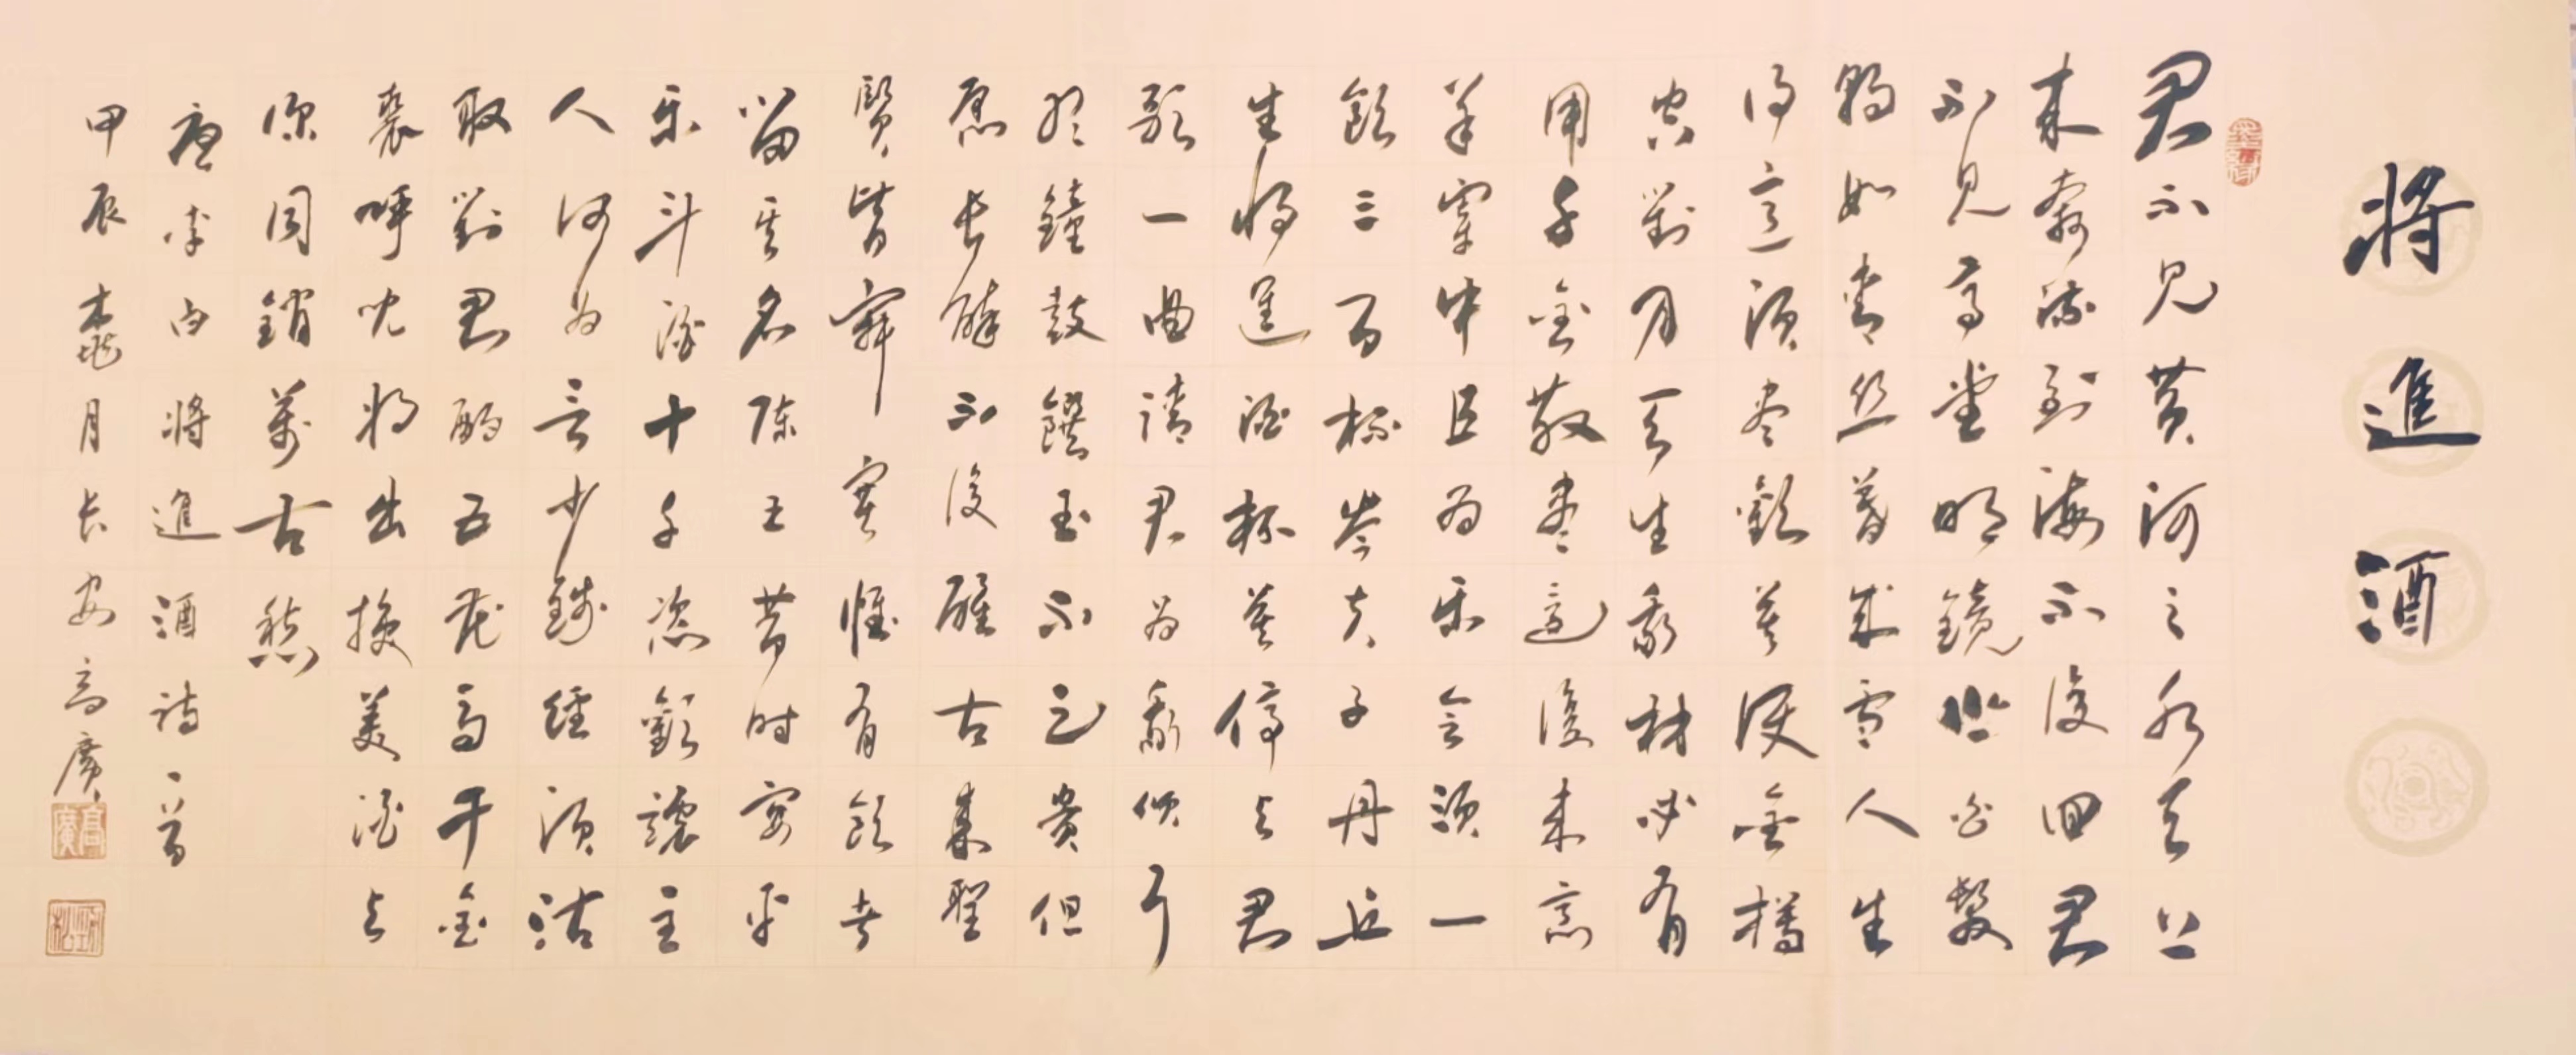 將進酒
君不見黃河之水天上
来奔流到海不復回君
不見高堂明鏡悲白髮
朝如青丝暮成雪人生
得意須尽歡莫使金樽
空對月天生我材必有
用千金散尽還復来烹
羊宰牛且为乐会須一
飲三百杯岑夫子丹丘
生将進酒杯莫停与君
歌一曲請君为我倾耳
听鐘鼓饌玉不足貴但
愿長醉不復醒古来聖
賢皆寂寞惟有飲者
留其名陈王昔时宴平
乐斗酒十千恣歡謔主
人何为言少錢径須沽
取對君酌五花馬千金
裘呼児将出换美酒与
你同銷萬古愁
唐李白將進酒詩一首
甲辰桃月长安高廣
高廣